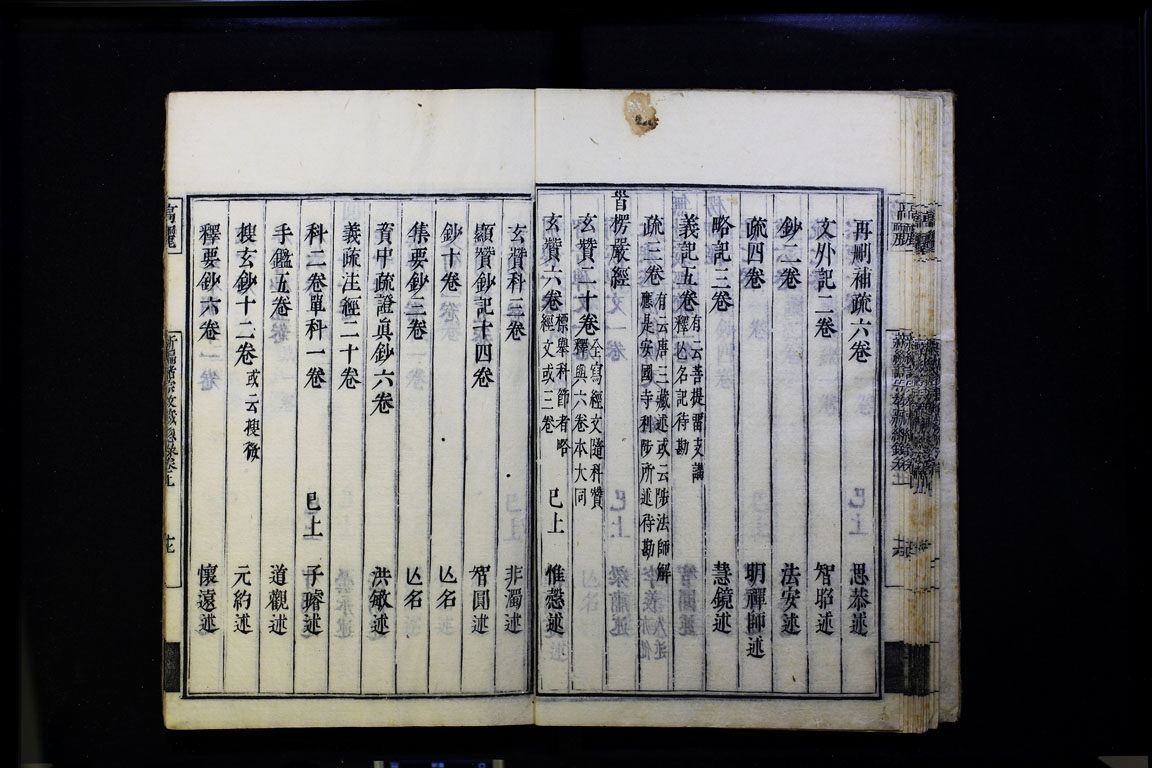 再刪補疏六卷 思恭述
文外記二卷 智䂮述
鈔二卷 法安述
疏四卷 明禪師述
略記三卷 慧鏡述
義記五卷 有云菩提留支講釋亾名記待勘
疏三卷 有云唐三藏述或云陟法師解應是安國寺利陟所述待勘
首楞嚴經
玄贊二十卷 全寫經文隨科贊釋與六卷本大同
玄贊六卷 標舉科節者略經文或三卷 巳上 惟慤述
玄贊科三卷 非濁述
顯贊鈔記十四卷 智圓述
鈔十卷 亾名
集要鈔三卷 亾名
資中疏證眞鈔六卷 洪敏述
義疏注經二十卷
科二卷單科一卷 巳上 子璿述
手鑑五卷 道觀述
搜玄鈔十二卷 或云搜微 元約述
釋要鈔六卷 懷遠述
高麗
新編諸宗教藏總錄卷上